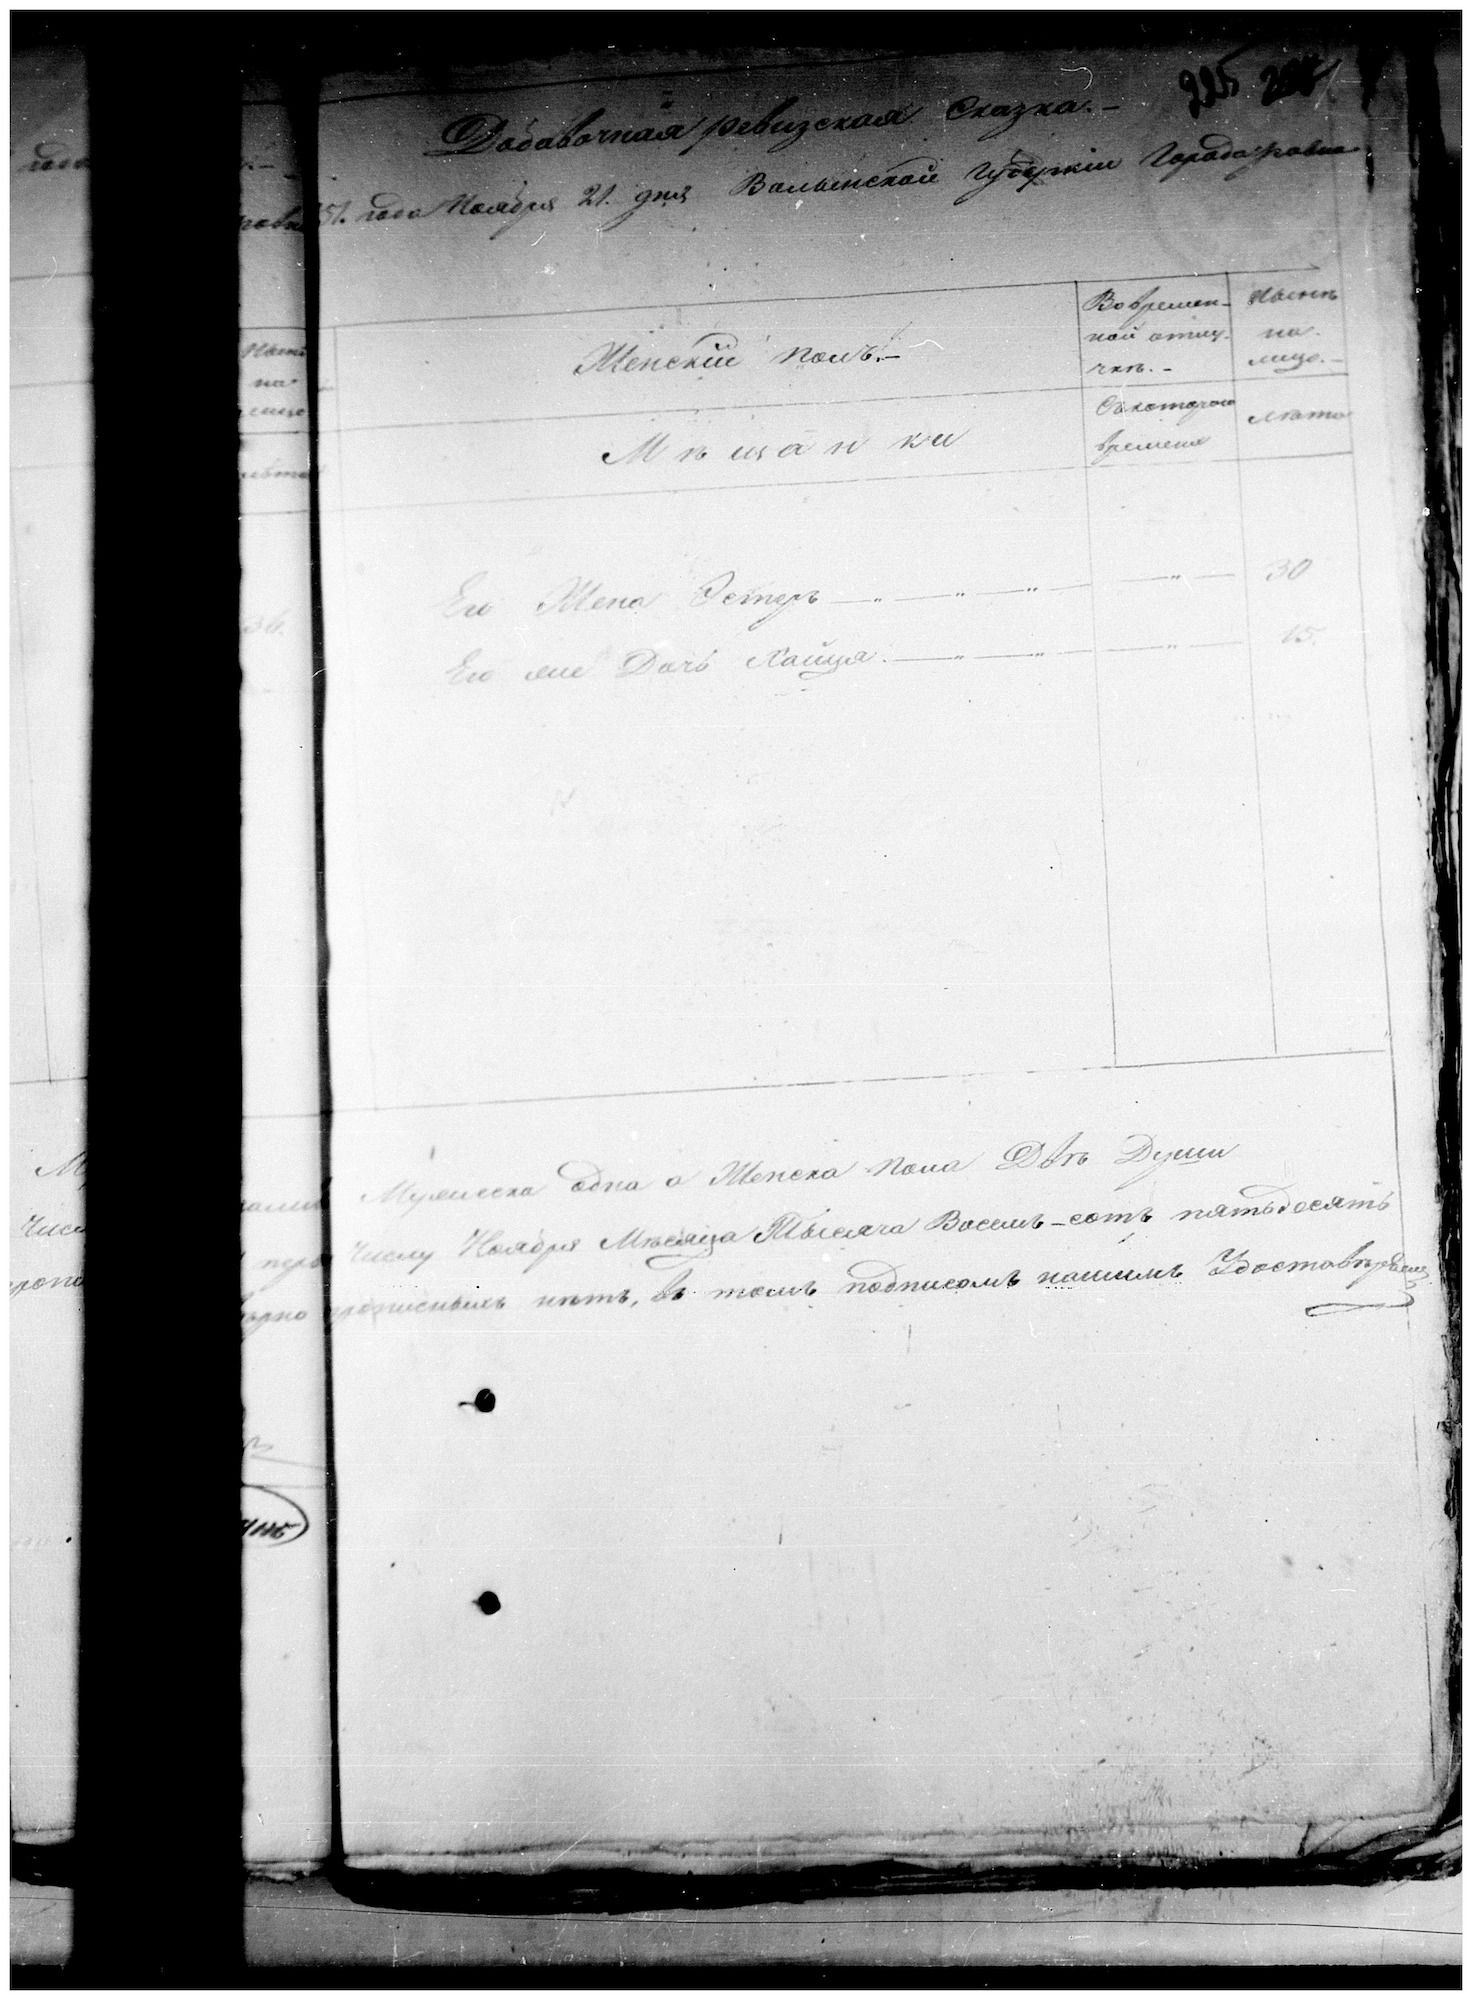 225
Добавочная ревизская Сказка.-
51. года Ноября 21. дня Волынской Губернии Города ровна
Женскій полъ.-
Во времен-
ной отлу-
чкѣ.-
Нынѣ
на
лицо.-
Мѣщанки
Съ котораго
времени
лѣта
Его Жена Эстеръ — „ — „ — „ — — „ — 30
Его же Дочь Хайця. — „ — „ — — „ — 15.
36.
Мужеска одна а Женска пола Двѣ Души
Числу Ноября Мѣсяца Тысяча Восемь-сотъ пятьдесятъ
прописныхъ нѣтъ, въ томъ подписомъ нашимъ Удостовѣряемъ